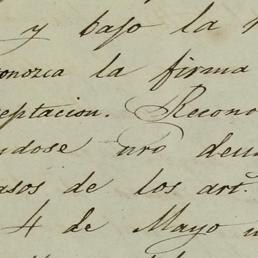 y bajo la
conozca la firma
eptacion. Recono
ndose nro deu
asos de los art.
4 de Mayo